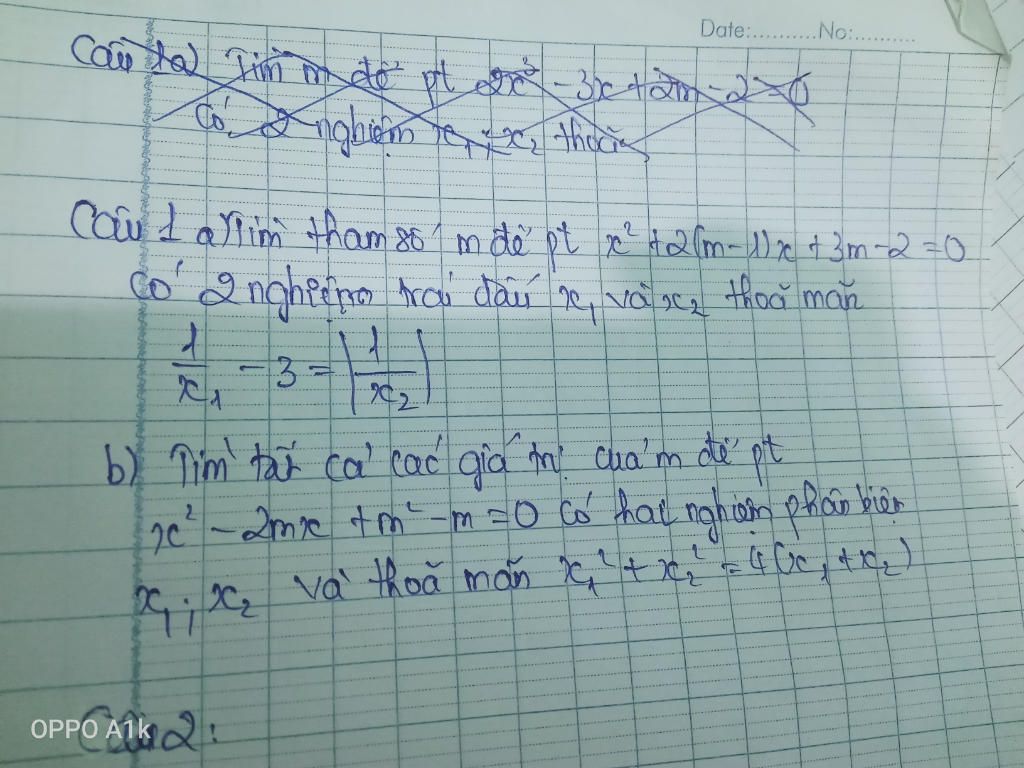 Date:..........No:..........
Câu 1a) Tìm m để pt 2x² - 3x + 2m - 2 = 0
Có 2 nghiệm x₁; x₂ thoã
Câu 1 a) Tìm tham số m để pt x² + 2(m-1)x + 3m - 2 = 0
Có 2 nghiệm trái dấu x₁ và x₂ thoã mãn
1/x₁ - 3 = |1/x₂|
b) Tìm tất cả các giá trị của m để pt
x² - 2mx + m² - m = 0 Có hai nghiệm phân biệt
x₁; x₂ và thoã mãn x₁² + x₂² = 4(x₁ + x₂)
Câu 2:
OPPO A1k